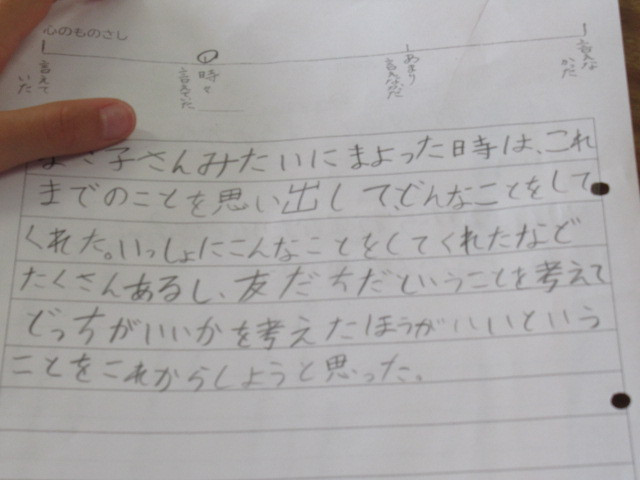 心のものさし
言えていた
時々言えていた
あまり言えなかった
言えなかった
子さんみたいにまよった時は、これ
までのことを思い出して、どんなことをして
くれた。いっしょにこんなことをしてくれたなど
たくさんあるし、友だちだということを考えて
どっちがいいかを考えたほうがいいという
ことをこれからしようと思った。